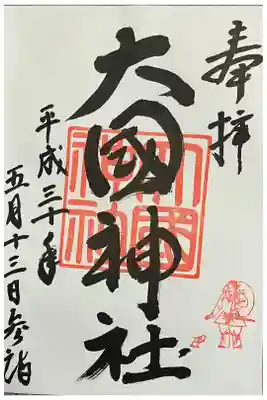 奉拝
大國神社
平成三十年
五月十三日参詣
大國
神社